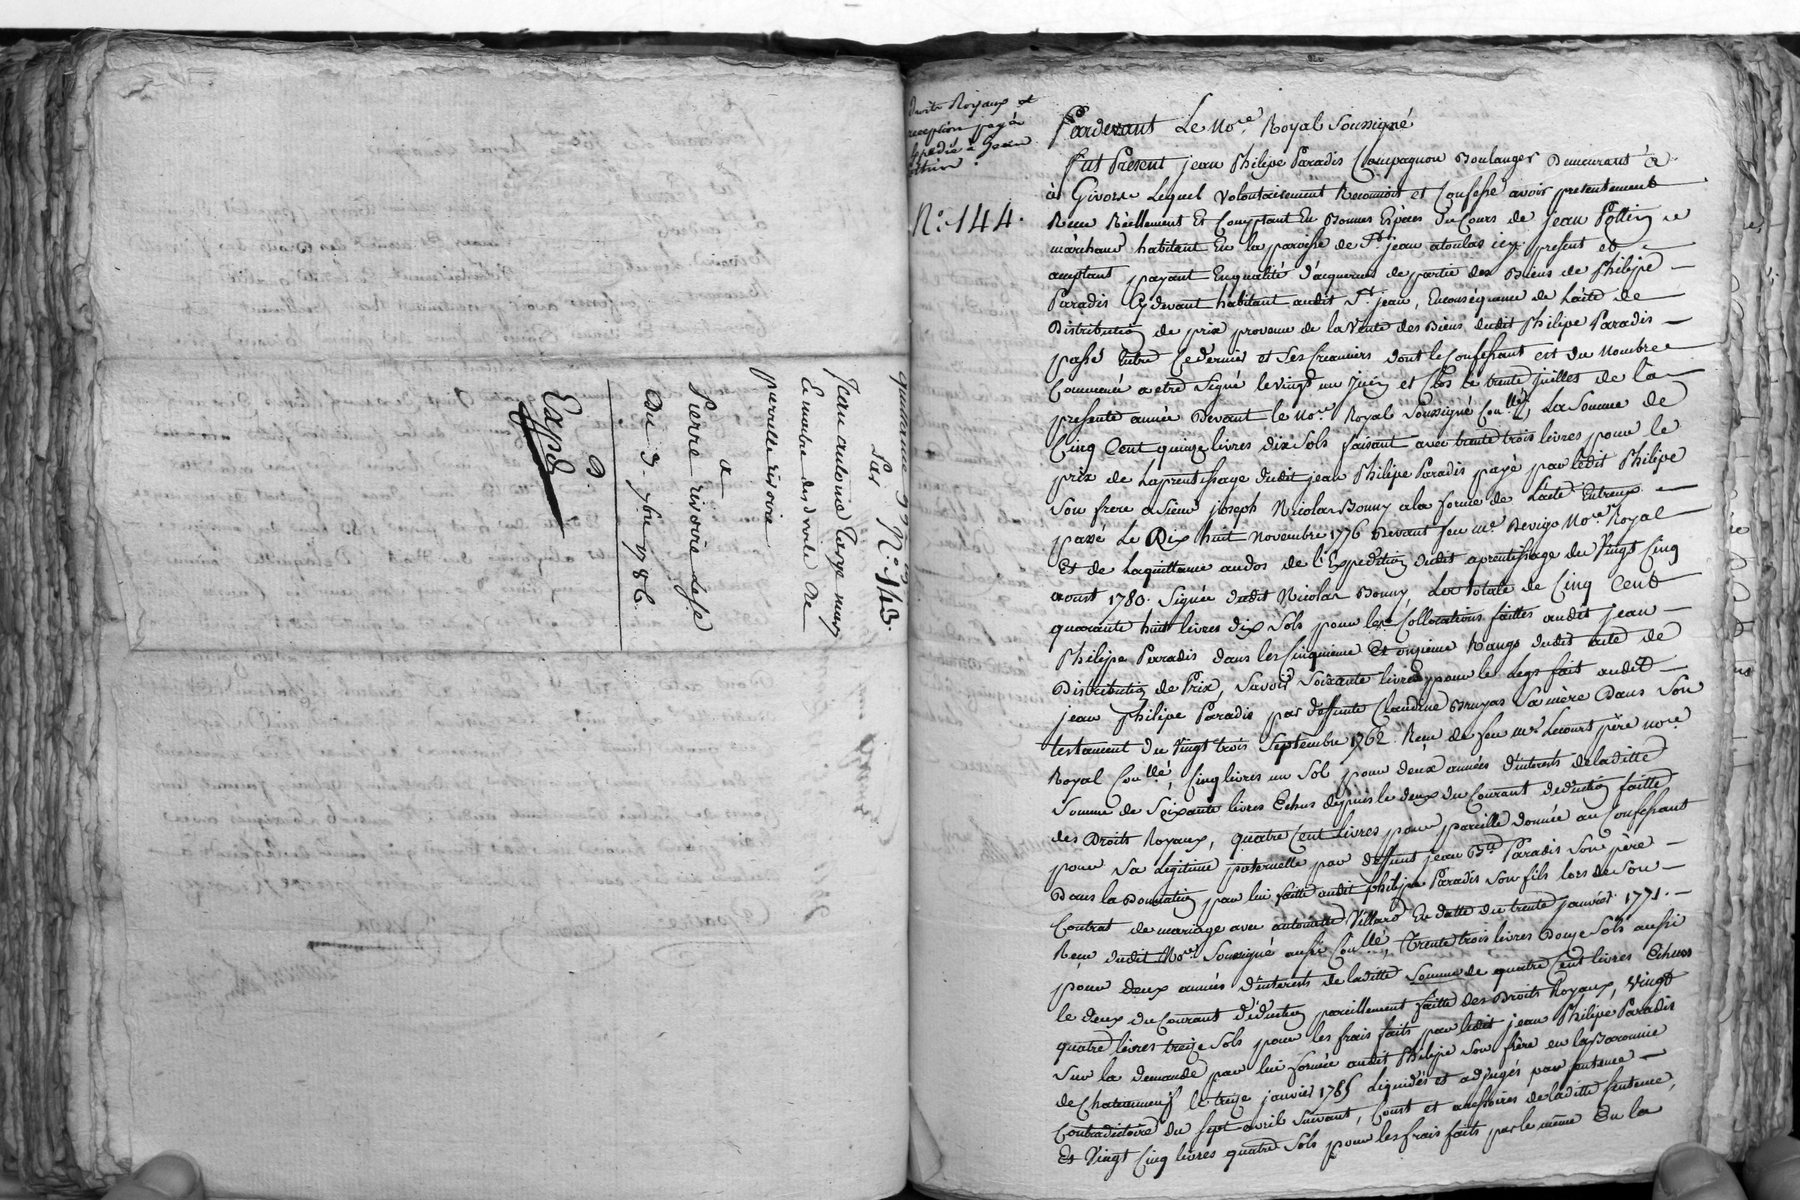 quittance 33₶
N.° 143.
Par
Jean antoine Targe mary
Et maitre des droits de
pernette rivoire
a
Pierre rivoire defft
Du 3. 7bre 1786.
Expd
droits Royaux et
reception payés
Expedié a jean
Pottin.
N.° 144.
Pardevant Le No.re Royal Soussigné
fut Present jean Philipe Paradis Compagnon Boulanger Demeurant à
à Givors Lequel volontairement Reconnoit et Confesse avoir presentement
Reçu Réellement Et Comptant En Bonnes Espèces du Cours de jean Pottin
marchand habitant En la paroisse de St. jean atoulas icy present et
acceptant payant Enqualité d'acquereur de partie des Biens de Philipe
Paradis Cydevant habitant audit St. jean, Enconséquence de L'acte de
Distribution de prix provenu de la Vente des Biens dudit Philipe Paradis
passé Entre Ce dernier et Ses Creanciers dont le Confessant est du Nombre
Commencé a etre Signé le vingt un Juin et Clos le trente juillet de la
presente année Devant le No.re Royal Soussigné Con.llé, La Somme de
Cinq Cent quinze livres dix Sols faisant avec trente trois livres pour le
prix de Laprentissage dudit jean Philipe Paradis payé par ledit Philipe
Son frere a Sieur joseph Nicolas Bonny a la forme de L'acte Entreux
passé Le Dix huit Novembre 1776 Devant feu me. Devigo No.re Royal
Et de Laquittance audos de l'Expedition dudit aprentissage du Vingt Cinq
aoust 1780. Signée dudit Nicolas Bonny, La totale de Cinq Cent
quarante huit livres dix Sols pour les Collocations faittes audit jean
Philipe Paradis dans les Cinquieme Et onzieme Rangs dudit acte de
Distribution de Prix, Savoir Soixante livres pour le Legs fait audit
jean philipe Paradis par deffunte Claudine Bruyas Sa mère Dans Son
testament du Vingt trois Septembre 1762. Reçu de feu me. Lecourt père no.re
Royal Con.llé, Cinq livres un Sol pour deux années d'interets de laditte
Somme de Soixante livres Echus depuis le deux du Courant deduction faitte
des Droits Royaux, quatre Cent Livres pour pareille donnée au Confessant
pour Sa Légitime paternelle par deffunt jean Bte. Paradis Son père
Dans la Donnation par lui faitte audit philipe Paradis Son fils lors de Son
Contrat de mariage avec antoinette Villard En datte du trente janvier 1771.
Reçu dudit No.re Soussigné aussi Con.llé, Trente trois livres Douze Sols aussi
pour deux années d'interets de laditte Somme de quatre Cent livres Echus
le deux du Courant déduction pareillement faitte des Droits Royaux, vingt
quatre livres treize Sols pour les frais faits par ledit jean Philipe Paradis
Sur la demande par lui formée audit Philipe Son frère en la Baronnie
de Chateauneuf le treize janvier 1785 Liquidés et adjugés par Sentence
Contradictoire du Sept avril Suivant, Coust et accessoires de laditte Sentence,
Et Vingt Cinq livres quatre Sols pour les frais faits par le même En la